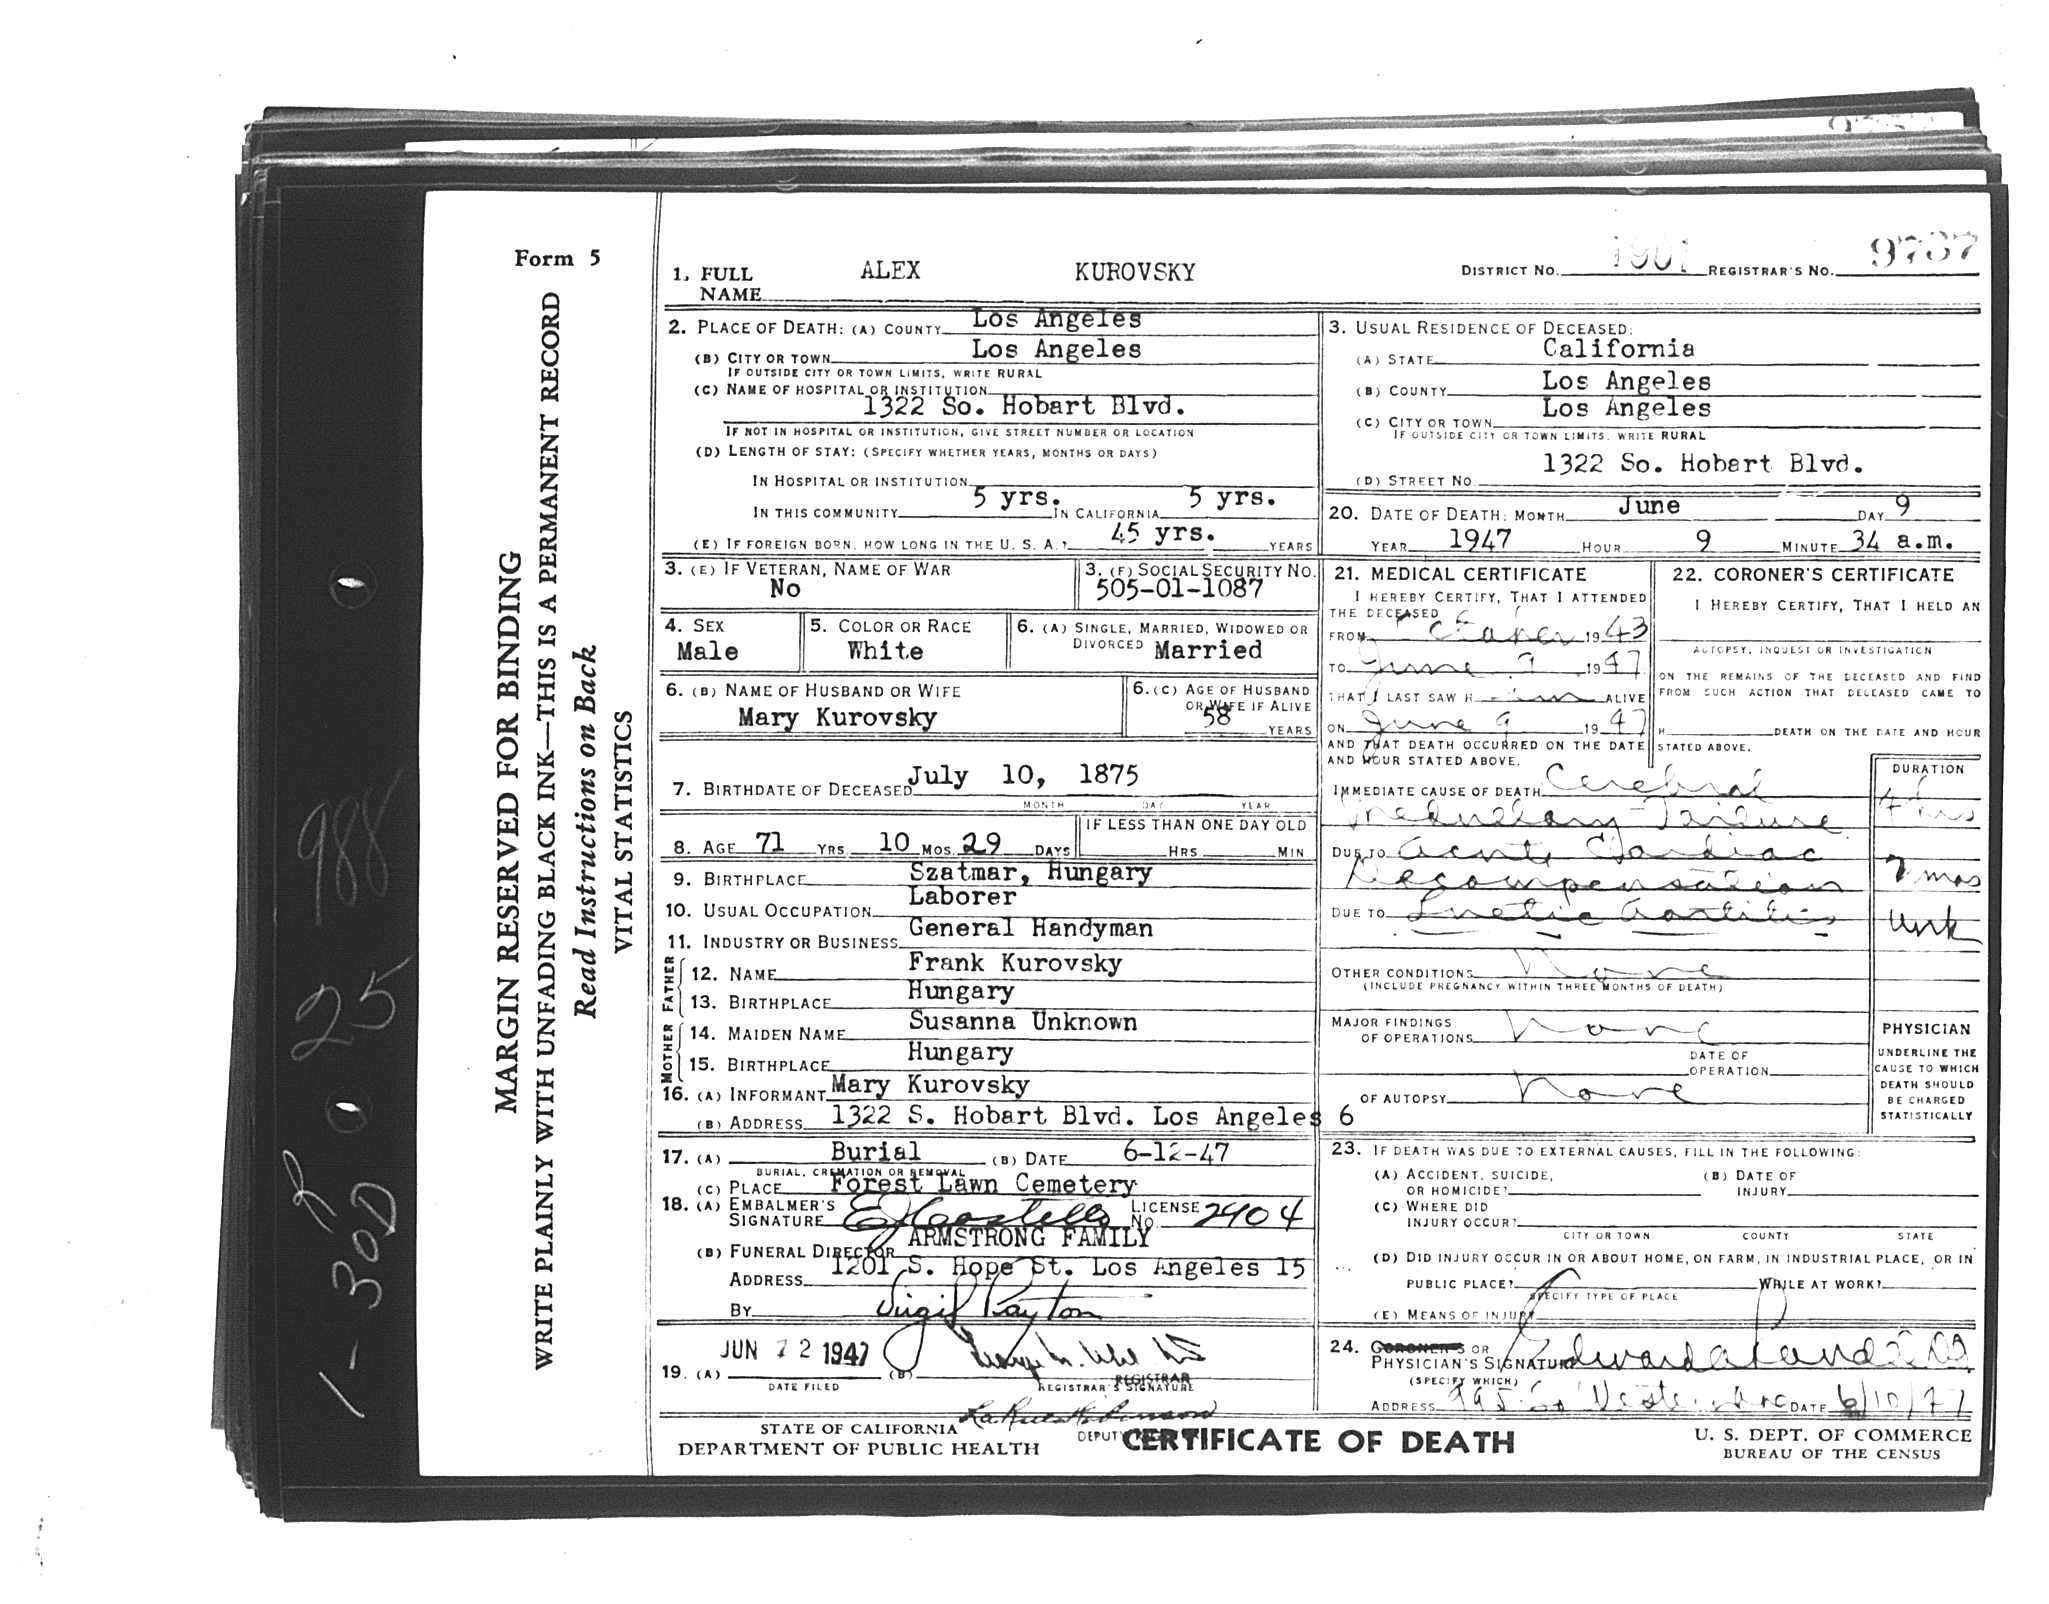 Form 5
MARGIN RESERVED FOR BINDING
WRITE PLAINLY WITH UNFADING BLACK INK—THIS IS A PERMANENT RECORD
Read Instructions on Back
VITAL STATISTICS
988
25
1-30D
1. FULL NAME ALEX KUROVSKY
DISTRICT NO. 1901 REGISTRAR'S NO. 9737
2. PLACE OF DEATH: (A) COUNTY Los Angeles
(B) CITY OR TOWN Los Angeles
IF OUTSIDE CITY OR TOWN LIMITS, WRITE RURAL
(C) NAME OF HOSPITAL OR INSTITUTION
1322 So. Hobart Blvd.
IF NOT IN HOSPITAL OR INSTITUTION, GIVE STREET NUMBER OR LOCATION
(D) LENGTH OF STAY: (SPECIFY WHETHER YEARS, MONTHS OR DAYS)
IN HOSPITAL OR INSTITUTION
IN THIS COMMUNITY 5 yrs. IN CALIFORNIA 5 yrs.
(E) IF FOREIGN BORN, HOW LONG IN THE U. S. A.? 45 yrs. YEARS
3. USUAL RESIDENCE OF DECEASED:
(A) STATE California
(B) COUNTY Los Angeles
(C) CITY OR TOWN Los Angeles
IF OUTSIDE CITY OR TOWN LIMITS, WRITE RURAL
(D) STREET NO. 1322 So. Hobart Blvd.
20. DATE OF DEATH: MONTH June DAY 9
YEAR 1947 HOUR 9 MINUTE 34 a.m.
3. (E) IF VETERAN, NAME OF WAR
No
3. (F) SOCIAL SECURITY NO.
505-01-1087
4. SEX
Male
5. COLOR OR RACE
White
6. (A) SINGLE, MARRIED, WIDOWED OR
DIVORCED Married
6. (B) NAME OF HUSBAND OR WIFE
Mary Kurovsky
6. (C) AGE OF HUSBAND
OR WIFE IF ALIVE
58 YEARS
7. BIRTHDATE OF DECEASED July 10, 1875
MONTH DAY YEAR
8. AGE 71 YRS 10 MOS. 29 DAYS
IF LESS THAN ONE DAY OLD
HRS MIN
9. BIRTHPLACE Szatmar, Hungary
10. USUAL OCCUPATION Laborer
11. INDUSTRY OR BUSINESS General Handyman
FATHER
12. NAME Frank Kurovsky
13. BIRTHPLACE Hungary
MOTHER
14. MAIDEN NAME Susanna Unknown
15. BIRTHPLACE Hungary
16. (A) INFORMANT Mary Kurovsky
(B) ADDRESS 1322 S. Hobart Blvd. Los Angeles 6
17. (A) Burial (B) DATE 6-12-47
BURIAL, CREMATION OR REMOVAL
(C) PLACE Forest Lawn Cemetery
18. (A) EMBALMER'S SIGNATURE E J Costello LICENSE NO. 2404
(B) FUNERAL DIRECTOR ARMSTRONG FAMILY
ADDRESS 1201 S. Hope St. Los Angeles 15
BY Virgil Payton
19. (A) JUN 12 1947 (B) George M. Uhl M.D.
DATE FILED REGISTRAR'S SIGNATURE
REGISTRAR
21. MEDICAL CERTIFICATE
I HEREBY CERTIFY, THAT I ATTENDED
THE DECEASED
FROM October 1943
TO June 9 1947
THAT I LAST SAW H im ALIVE
ON June 9 1947
AND THAT DEATH OCCURRED ON THE DATE
AND HOUR STATED ABOVE.
22. CORONER'S CERTIFICATE
I HEREBY CERTIFY, THAT I HELD AN
AUTOPSY, INQUEST OR INVESTIGATION
ON THE REMAINS OF THE DECEASED AND FIND
FROM SUCH ACTION THAT DECEASED CAME TO
H DEATH ON THE DATE AND HOUR
STATED ABOVE.
DURATION
IMMEDIATE CAUSE OF DEATH Cerebral
Medullary Failure 4 hrs
DUE TO Acute Cardiac
Decompensation 7 mos
DUE TO Luetic Aortitis Unk
OTHER CONDITIONS None
(INCLUDE PREGNANCY WITHIN THREE MONTHS OF DEATH)
MAJOR FINDINGS:
OF OPERATIONS None
DATE OF
OPERATION
OF AUTOPSY None
PHYSICIAN
UNDERLINE THE
CAUSE TO WHICH
DEATH SHOULD
BE CHARGED
STATISTICALLY
23. IF DEATH WAS DUE TO EXTERNAL CAUSES, FILL IN THE FOLLOWING:
(A) ACCIDENT, SUICIDE,
OR HOMICIDE?
(B) DATE OF
INJURY
(C) WHERE DID
INJURY OCCUR?
CITY OR TOWN COUNTY STATE
(D) DID INJURY OCCUR IN OR ABOUT HOME, ON FARM, IN INDUSTRIAL PLACE, OR IN
PUBLIC PLACE? WHILE AT WORK?
SPECIFY TYPE OF PLACE
(E) MEANS OF INJURY
24. CORONER'S OR
PHYSICIAN'S SIGNATURE Edward
(SPECIFY WHICH)
ADDRESS 995 So Western Ave DATE 6/10/47
STATE OF CALIFORNIA
DEPARTMENT OF PUBLIC HEALTH
DEPUTY
CERTIFICATE OF DEATH
U. S. DEPT. OF COMMERCE
BUREAU OF THE CENSUS